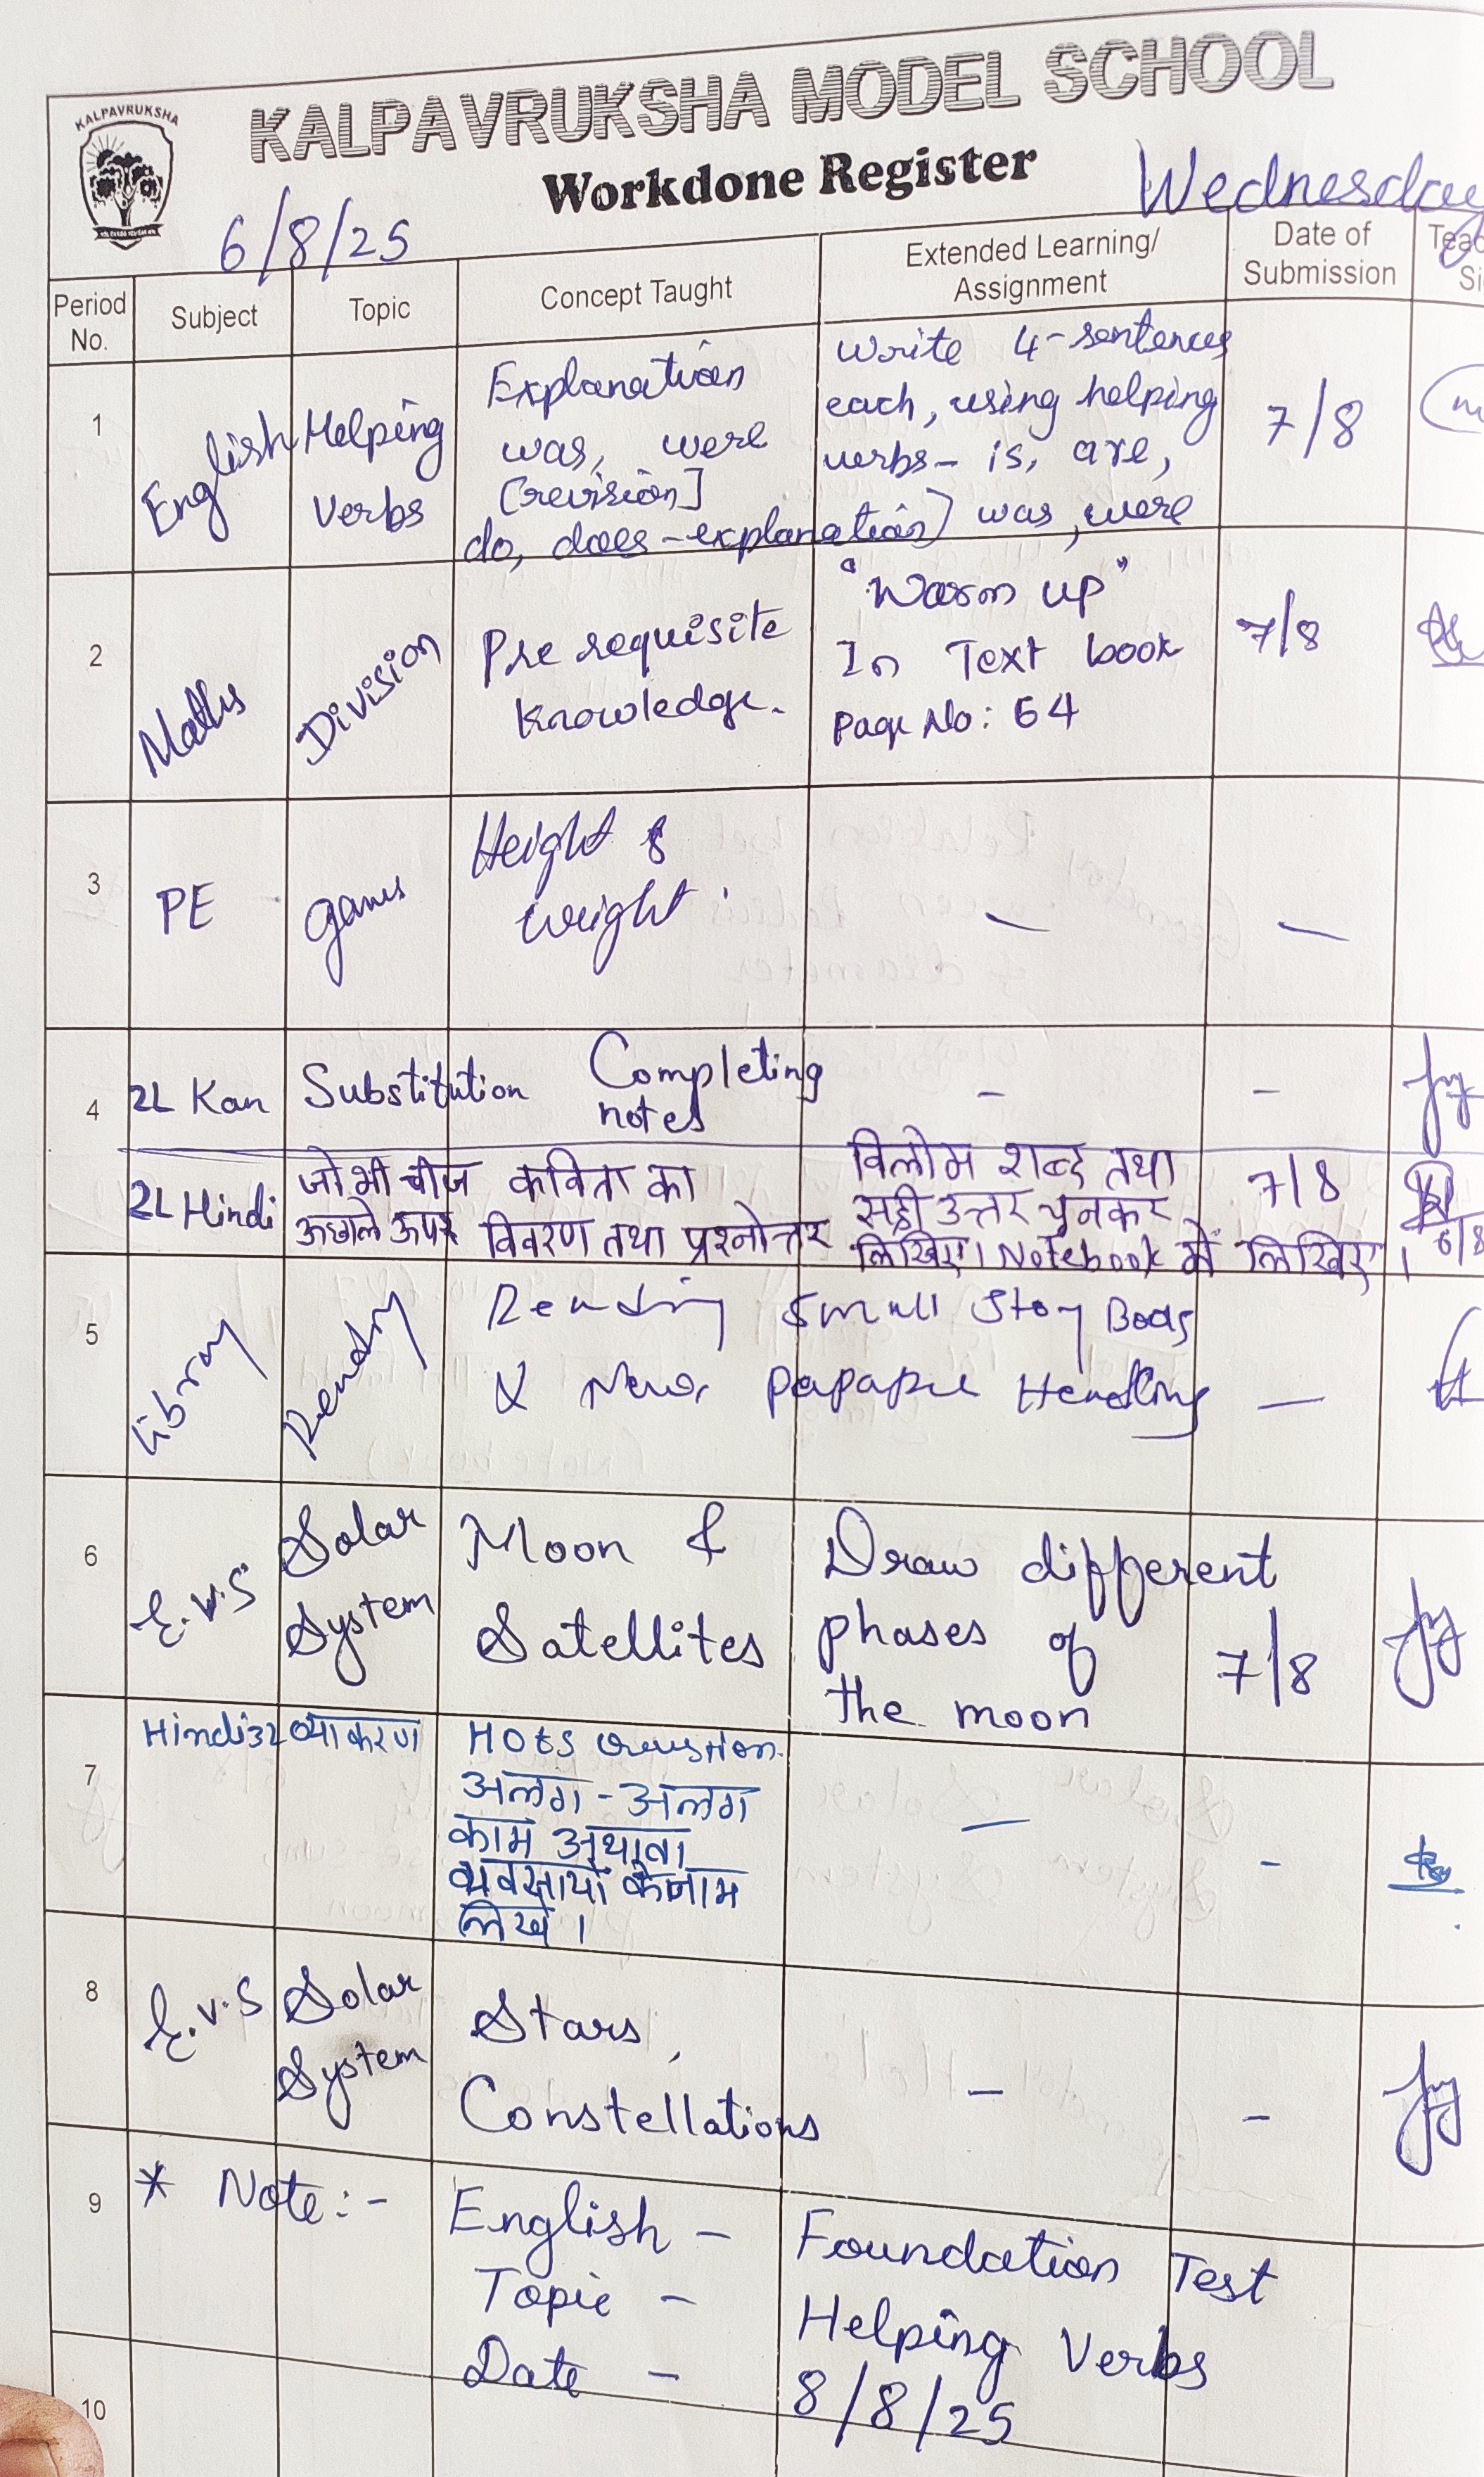 KALPAVRUKSHA
KALPAVRUKSHA MODEL SCHOOL
Workdone Register
6/8/25
Wednesday
Period No.
Subject
Topic
Concept Taught
Extended Learning/
Assignment
Date of
Submission
1
English
Helping
Verbs
Explanation
was, were
[revision]
do, does - explanation]
Write 4-sentences
each, using helping
verbs - is, are,
was, were
7/8
2
Maths
Division
Pre requisite
knowledge.
"Warm up"
In Text book
Page No: 64
7/8
3
PE
games
Height &
weight.
—
—
4
2L Kan
Substitution
Completing
notes
-
-
2L Hindi
जो भी चीज
ऊछाले ऊपर
कविता का
विवरण तथा प्रश्नोत्तर
विलोम शब्द तथा
सही उत्तर चुनकर
लिखिए। Notebook में लिखिए।
7/8
6/8
5
Reading Small Story Books
—
6
E.V.S
Solar
System
Moon &
Satellites
Draw different
phases of
the moon
7/8
7
Hindi 3L
व्याकरण
HOTS Question.
अलग - अलग
काम अथवा
व्यवसायों के नाम
लिखें।
—
-
8
E.V.S
Solar
System
Stars,
Constellations
-
-
9
* Note:-
English - Foundation Test
Topic - Helping Verbs
Date - 8/8/25
10